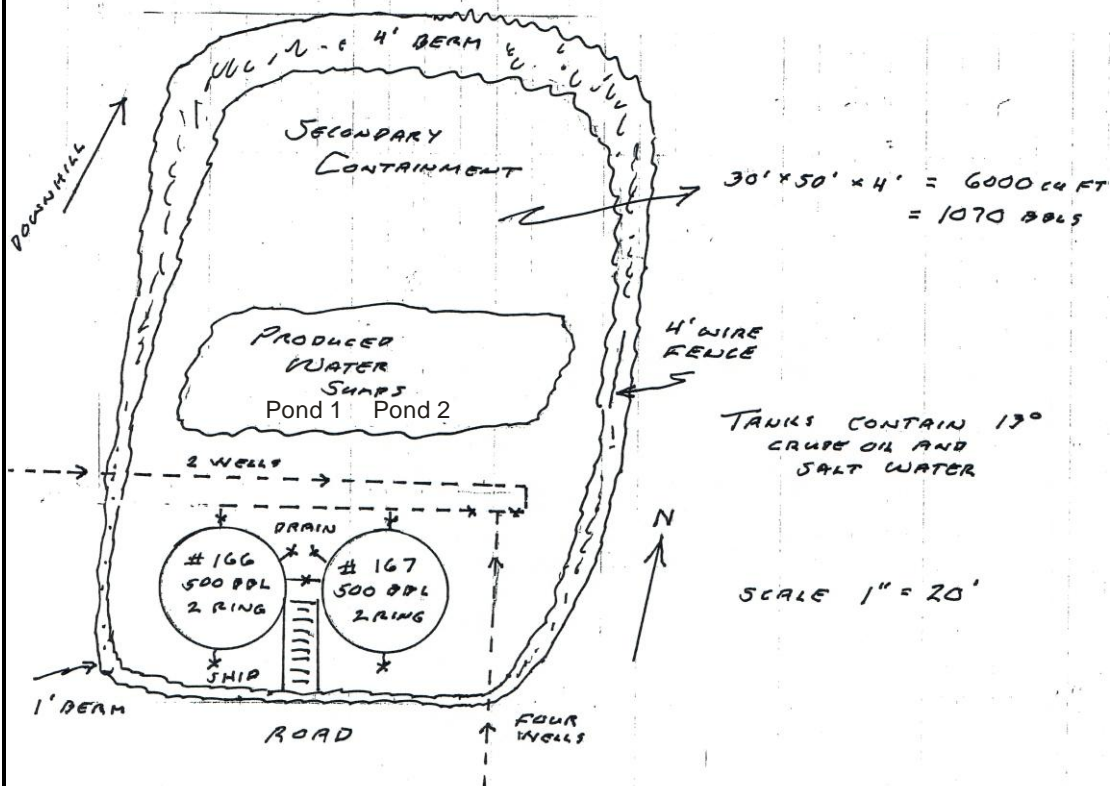 4' BERM
DOWNHILL
SECONDARY
CONTAINMENT
30' x 50' x 4' = 6000 CU FT
= 1070 BBLS
PRODUCED
WATER
SUMPS
Pond 1 Pond 2
4' WIRE
FENCE
TANKS CONTAIN 13°
CRUDE OIL AND
SALT WATER
2 WELLS
DRAIN
# 166
500 BBL
2 RING
# 167
500 BBL
2 RING
N
SCALE 1" = 20'
SHIP
1' BERM
ROAD
FOUR
WELLS